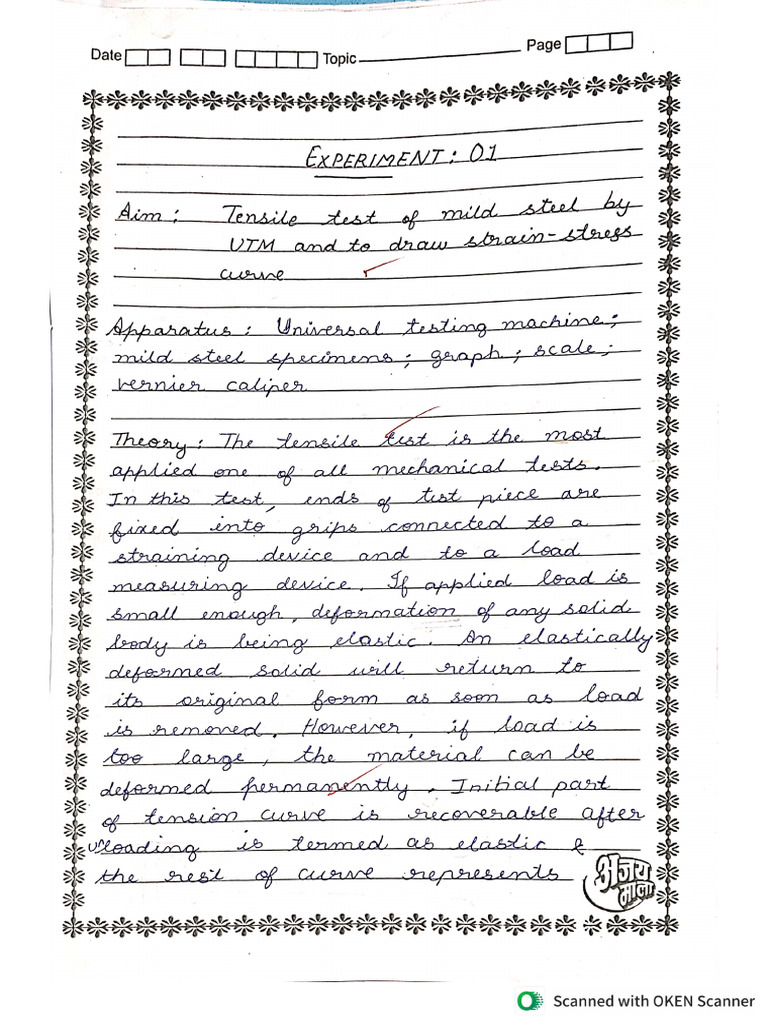 Date Topic Page
EXPERIMENT: 01
Aim: Tensile test of mild steel by
UTM and to draw strain-stress
curve
Apparatus: Universal testing machine;
mild steel specimens; graph; scale;
vernier caliper
Theory: The tensile test is the most
applied one of all mechanical tests.
In this test, ends of test piece are
fixed into grips connected to a
straining device and to a load
measuring device. If applied load is
small enough, deformation of any solid
body is being elastic. An elastically
deformed solid will return to
its original form as soon as load
is removed. However, if load is
too large, the material can be
deformed permanently. Initial part
of tension curve is recoverable after
unloading is termed as elastic &
the rest of curve represents
अजय
माला
Scanned with OKEN Scanner